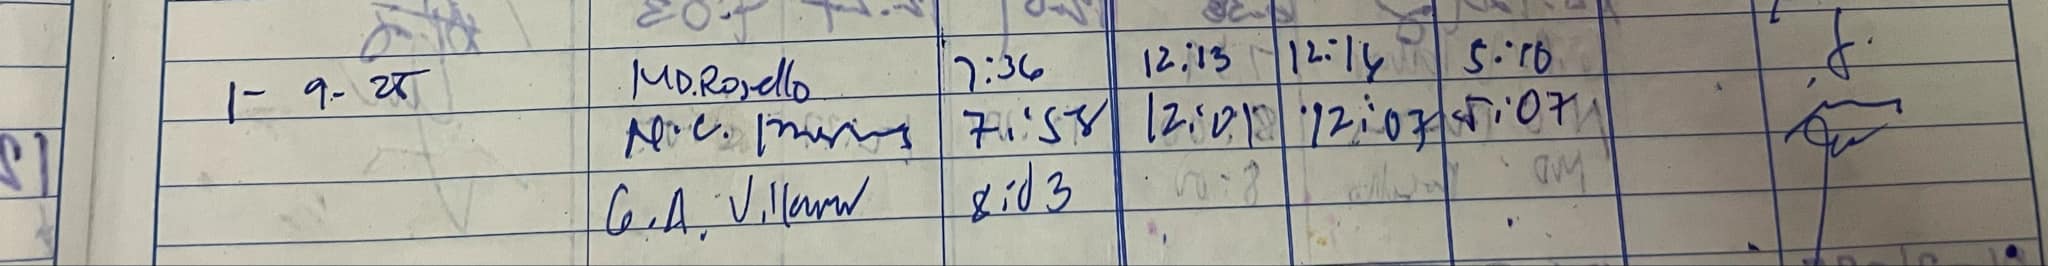 1- 9- 25 MD. Rosello 7:36 12:13 12:14 5:10
N.C. 7:58 12:01 12:07 5:07
G.A. Villarul 8:03